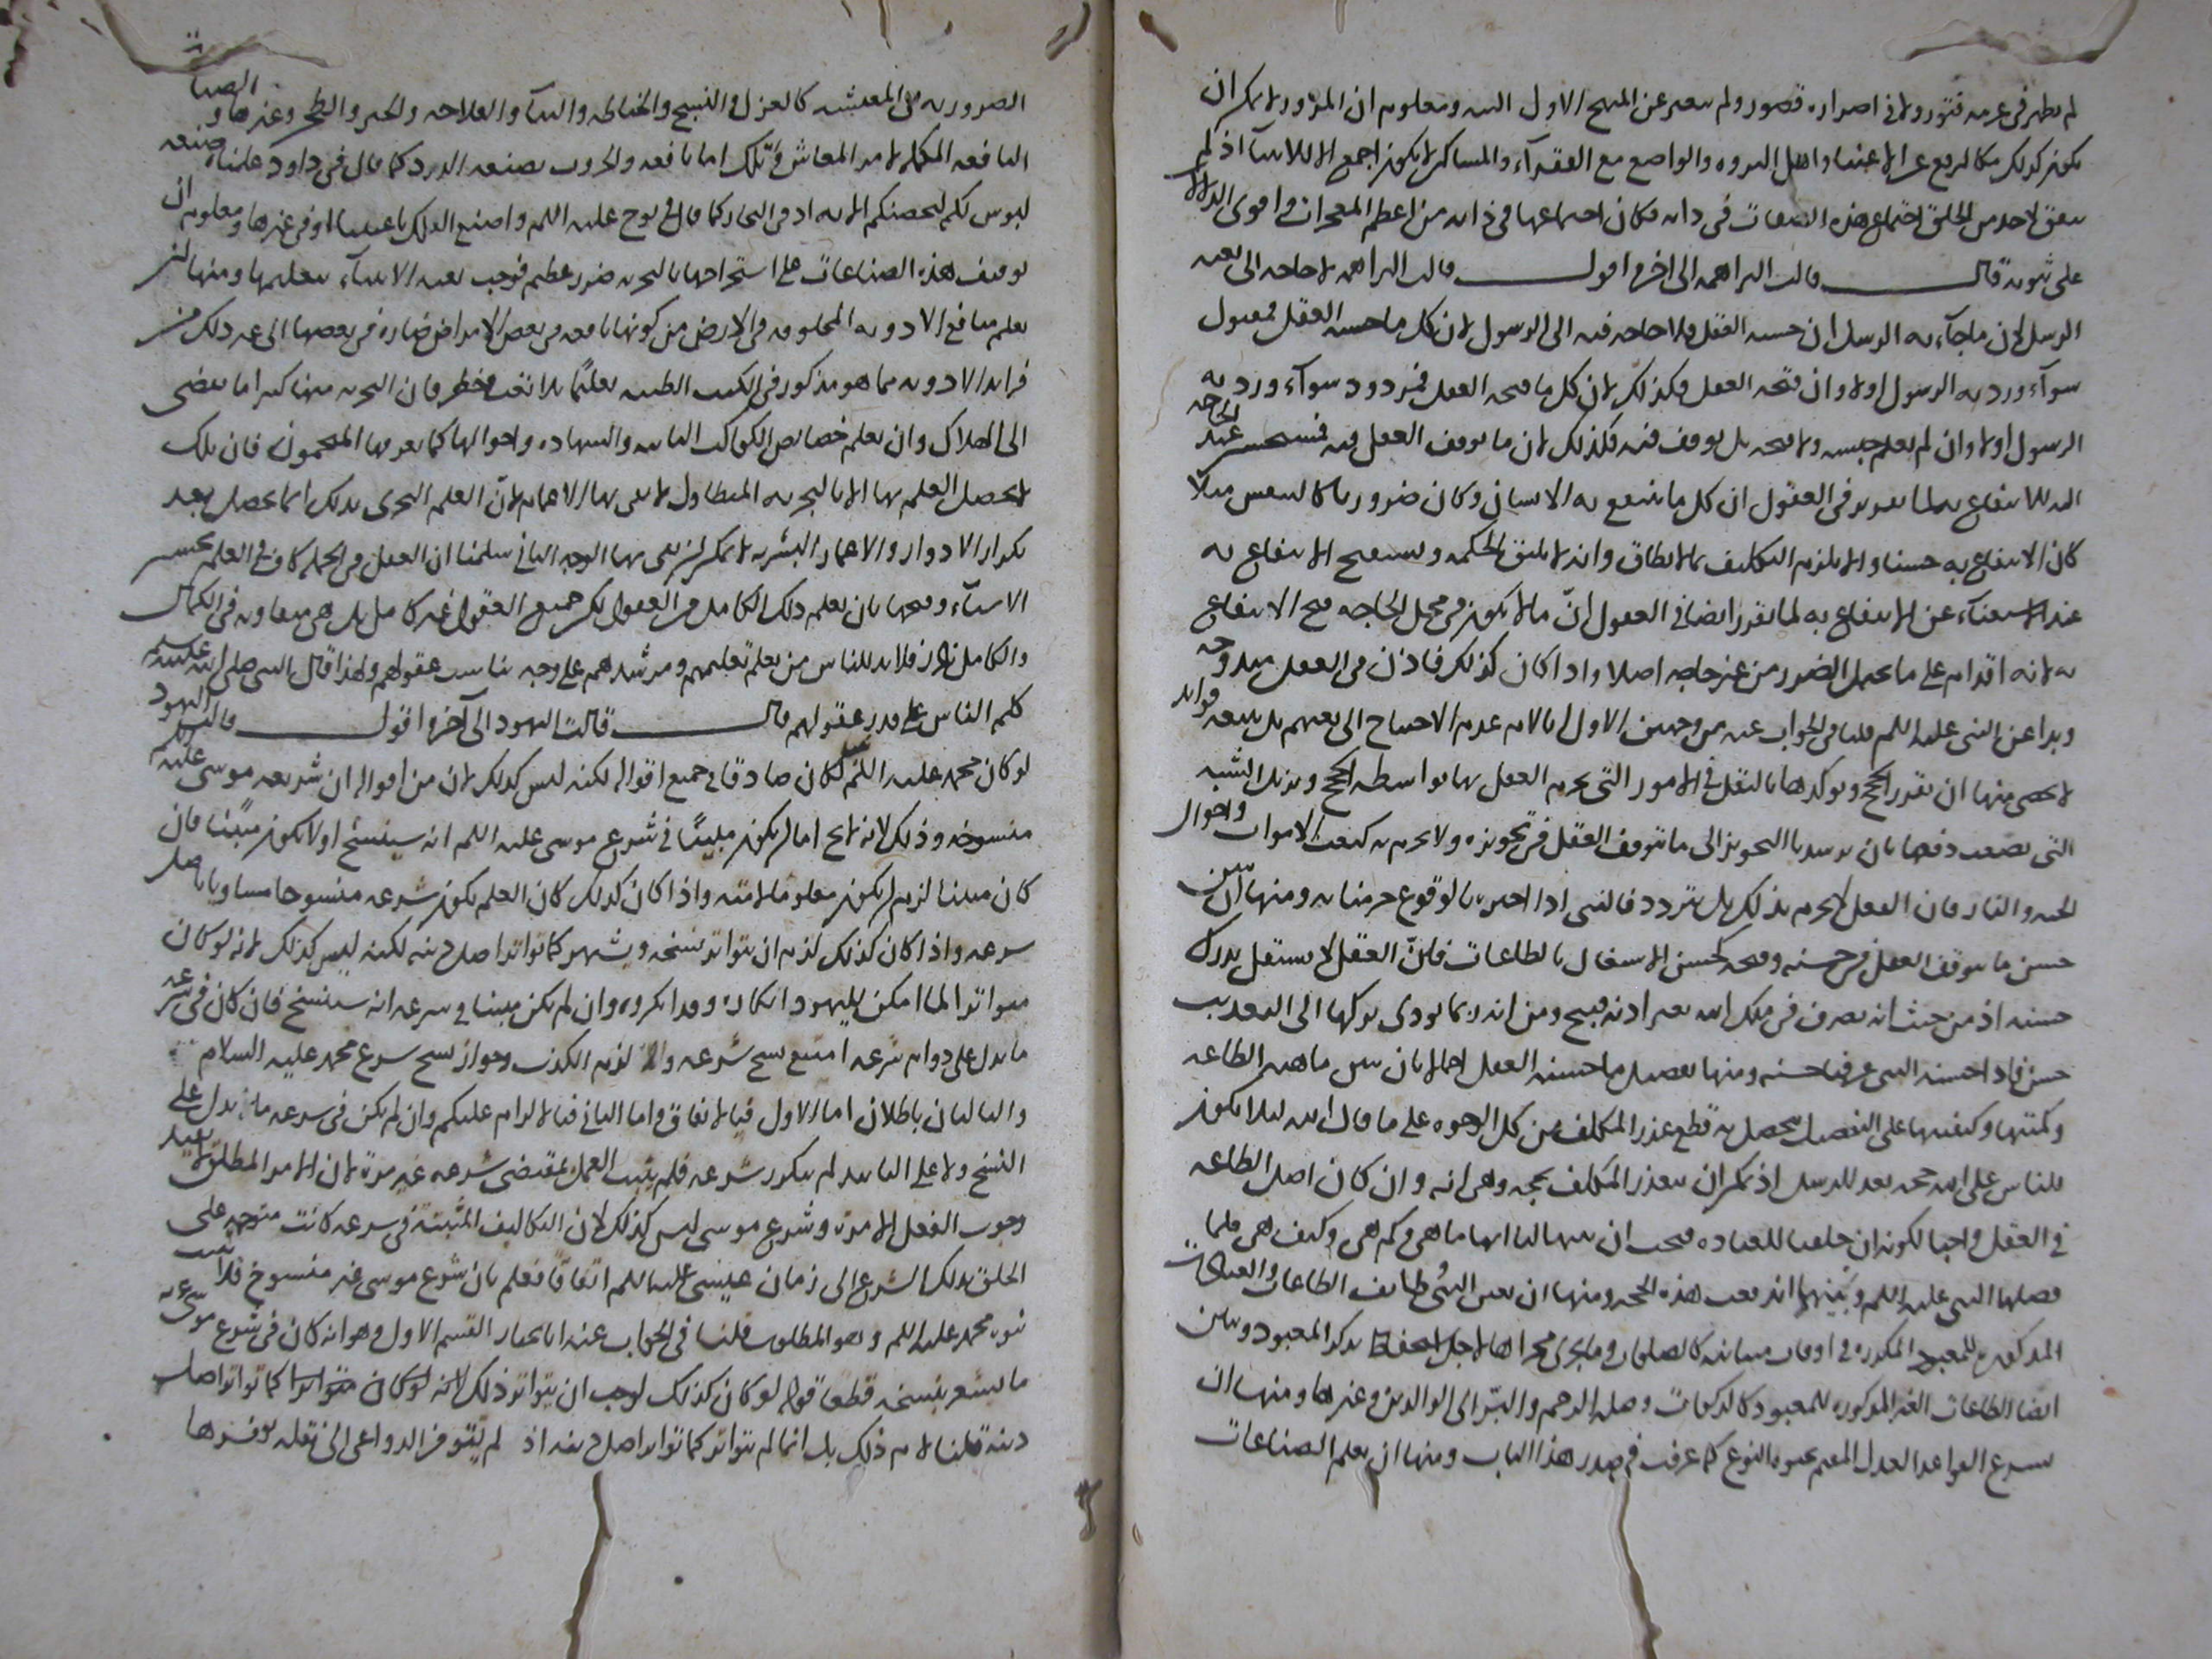 لم يظهر فى عزمه فتور ولا فى اصراره قصور ولم يتغير عن المنهج الاول البتة ومعلوم ان المزور لا يمكن ان
يكون كذلك كان يرفع عن الاغنياء واهل الثروة والتواضع مع الفقرآء والمساكين لا يكون اجمع الا للانبياء اذ لم
يتفق لاحد من الخلق اجتماع هذه الصفات فى ذاته فكان اجتماعها فى ذاته من اعظم المعجزات واقوى الدلائل
على نبوته قال قالت البراهمة الى اخره اقول قالت البراهمة لا حاجة الى بعثة
الرسل لان ما جآء به الرسل ان حسنه العقل فلا حاجة فيه الى الرسول لان كل ما حسنه العقل فمقبول
سوآء ورد به الرسول اولا وان قبحه العقل فكذلك لان كل ما قبحه العقل فمردود سوآء ورد به
الرسول اولا وان لم يعلم حسنه ولا قبحه بل توقف فيه فكذلك لان ما توقف العقل فيه فمستحسن عند الحاجة
اليه للانتفاع به لما تقرر فى العقول ان كل ما ينتفع به الانسان وكان ضروريا كالتنفس مثلا
كان الانتفاع به حسنا والا يلزم التكليف بما لا يطاق وانه لا يليق بالحكمة ويستقبح الانتفاع به
عند الاستغنآء عن الانتفاع به لما تقرر ايضا فى العقول انّ ما لا يكون فى محل الحاجة قبح الانتفاع
به لانه اقدام على ما يحتمل الضرر من غير حاجة اصلا واذا كان كذلك فاذن فى العقل مندوحة
وبدا عن النبى عليه السلم قلنا فى الجواب عنه من وجهين الاول انا لا نم عدم الاحتياج الى بعثهم بل للبعثة فوائد
لا تحصى منها ان تقرر الحجج وتوكدها بالنقل فى الامور التى يجزم العقل بها بواسطة الحجج وتزيل الشبه
التى تصعب دفعها بان يرشدنا التجويز الى ما يتوقف العقل فى تجويزه ولا يجزم به كبعث الاموات واحوال
الجنة والنار فان العقل لا يجزم بذلك بل يتردد فالنبى اذا اخبرنا بالوقوع جزمنا به ومنها ان يبين
حسن ما يتوقف العقل فى حسنه وقبحه كحسن الاشتغال بالطاعات فانّ العقل لا يستقل بدرك
حسنه اذ من حيث انه تصرف فى ملك الله بغير اذنه قبيح ومن انه ربما يودى تركها الى التعذيب
حسن فاذا حسنه النبى عرفنا حسنه ومنها تفصيل ما حسنه العقل اجمالا بان يبين ماهية الطاعة
وكميتها وكيفيتها على التفصيل يحصل به قطع عذر المكلف من كل الوجوه على ما قال الله لئلا يكون
للناس على الله حجة بعد الرسل اذ يمكن ان يعتذر المكلف بحجة وهى انه وان كان اصل الطاعة
فى العقل واجبا لكونه ان خلقنا للعبادة فيجب ان يبين لنا انها ما هى وكم هى وكيف هى فلما
فصلها النبى عليه السلم وبينها اندفعت هذه الحجة ومنها ان يعين النبى وظايف الطاعات والعبادات
المذكرة للمعبود المكررة فى اوقات متتالية كالصلوة وما يجرى مجراها لاجل استحفاظ تذكر المعبود ويبين
ايضا الطاعات الغير المذكورة للمعبود كالزكوات وصلة الرحم والبرّ الى الوالدين وغيرها ومنها ان
يشرع القواعد العدل المقيم بحيوة النوع كما عرفت فى صدر هذا الباب ومنها ان يعلم الصناعات
الضرورية فى المعيشة كالغزل والنسج والخياطة والبنآء والفلاحة والخبز والطبخ وغيرها والصناعات
النافعة المكملة لامر المعاش وتلك اما نافعة فى الحروب كصنعة الدرع كما قال فى داود علمناه صنعة
لبوس لكم لتحصنكم الاية او فى البحار كما قال فى نوح عليه السلم واصنع الفلك باعيننا او فى غيرها ومعلوم ان
توقيف هذه الصناعات على استخراجها بالتجربة ضرر عظيم فوجب بعثة الانبيآء لتعليمها ومنها ان
يعلم منافع الادوية المخلوقة فى الارض من كونها نافعة فى بعض الامراض ضارة فى بعضها الى غير ذلك من
فوايد الادوية مما هو مذكور فى الكتب الطبية تعليمًا بلا تعب وخطر فان التجربة منها كثيرا ما تفضى
الى الهلاك وان يعلم خصايص الكواكب الثابتة والسيارة واحوالها كما يعرفها المنجمون فان تلك
لا يحصل العلم بها الا بالتجربة المتطاول لا تفى بها الاعمار لانّ العلم التجربى بذلك انما يحصل بعد
تكرار الادوار والاعمار البشرية لا يمكن ان تفى بها الوجه الثانى سلمنا ان العقل فى الجملة كاف فى العلم بحسن
الاشيآء وقبحها بان يعلم ذلك الكامل فى العقول لكن جميع العقول غير كامل بل هى متفاوتة فى الكمال
والكامل نادر فلا بد للناس من معلم تعليمهم ومرشدهم على وجه يناسب عقولهم ولهذا قال النبى صلى الله عليه
كلم الناس على قدر عقولهم قال قالت اليهود الى آخره اقول قالت اليهود
لو كان محمد عليه السلم نبيا لكان صادقا فى جميع اقواله لكنه ليس كذلك لان من اقواله ان شريعة موسى عليه السلم
منسوخة وذلك لانه لا يخ اما ان يكون مبينًا فى شرع موسى عليه السلم انه سينسخ او لا يكون مبيّنا فان
كان مبينا لزم ان يكون معلوما لامته واذا كان كذلك كان العلم بكون شرعه منسوخا مساويا باصل
شرعه واذا كان كذلك لزم ان يتواتر نسخه ويشهر كما تواتر اصل دينه لكنه ليس كذلك لانه لو كان
متواترا لما امكن لليهود انكاره وقد انكروه وان لم يكن مبينا فى شرعه انه سينسخ فان كان فى شرعه
ما يدل على دوام شرعه امتنع نسخ شرعه والا لزم الكذب وجواز نسخ شرع محمد عليه السلام
والتاليان باطلان اما الاول فبالاتفاق واما الثانى فبالالزام عليكم وان لم يكن فى شرعه ما يدل على
النسخ ولا على التابيد لم يتكرر شرعه فلم يثبت العمل بمقتضى شرعه غير مرة لان الامر المطلق لا يفيد
وجوب الفعل الا مرة وشرع موسى ليس كذلك لان التكاليف المثبتة فى شرعه كانت متوجهة على
الخلق بذلك الشرع الى زمان عيسى عليه السلم اتفاقا فعلم بان شرع موسى غير منسوخ فلا يثبت
نبوة محمد عليه السلم وهو المطلوب قلنا فى الجواب عنه انا نختار القسم الاول وهو انه كان فى شرع موسى عم
ما يشعر بنسخه قطعا قوله لو كان كذلك لوجب ان يتواتر ذلك لانه لو كان متواترا كما تواتر اصل
دينه قلنا لا نم ذلك بل انما لم يتواتر كما تواتر اصل دينه اذ لم يتوفر الدواعى الى نقله توفرها